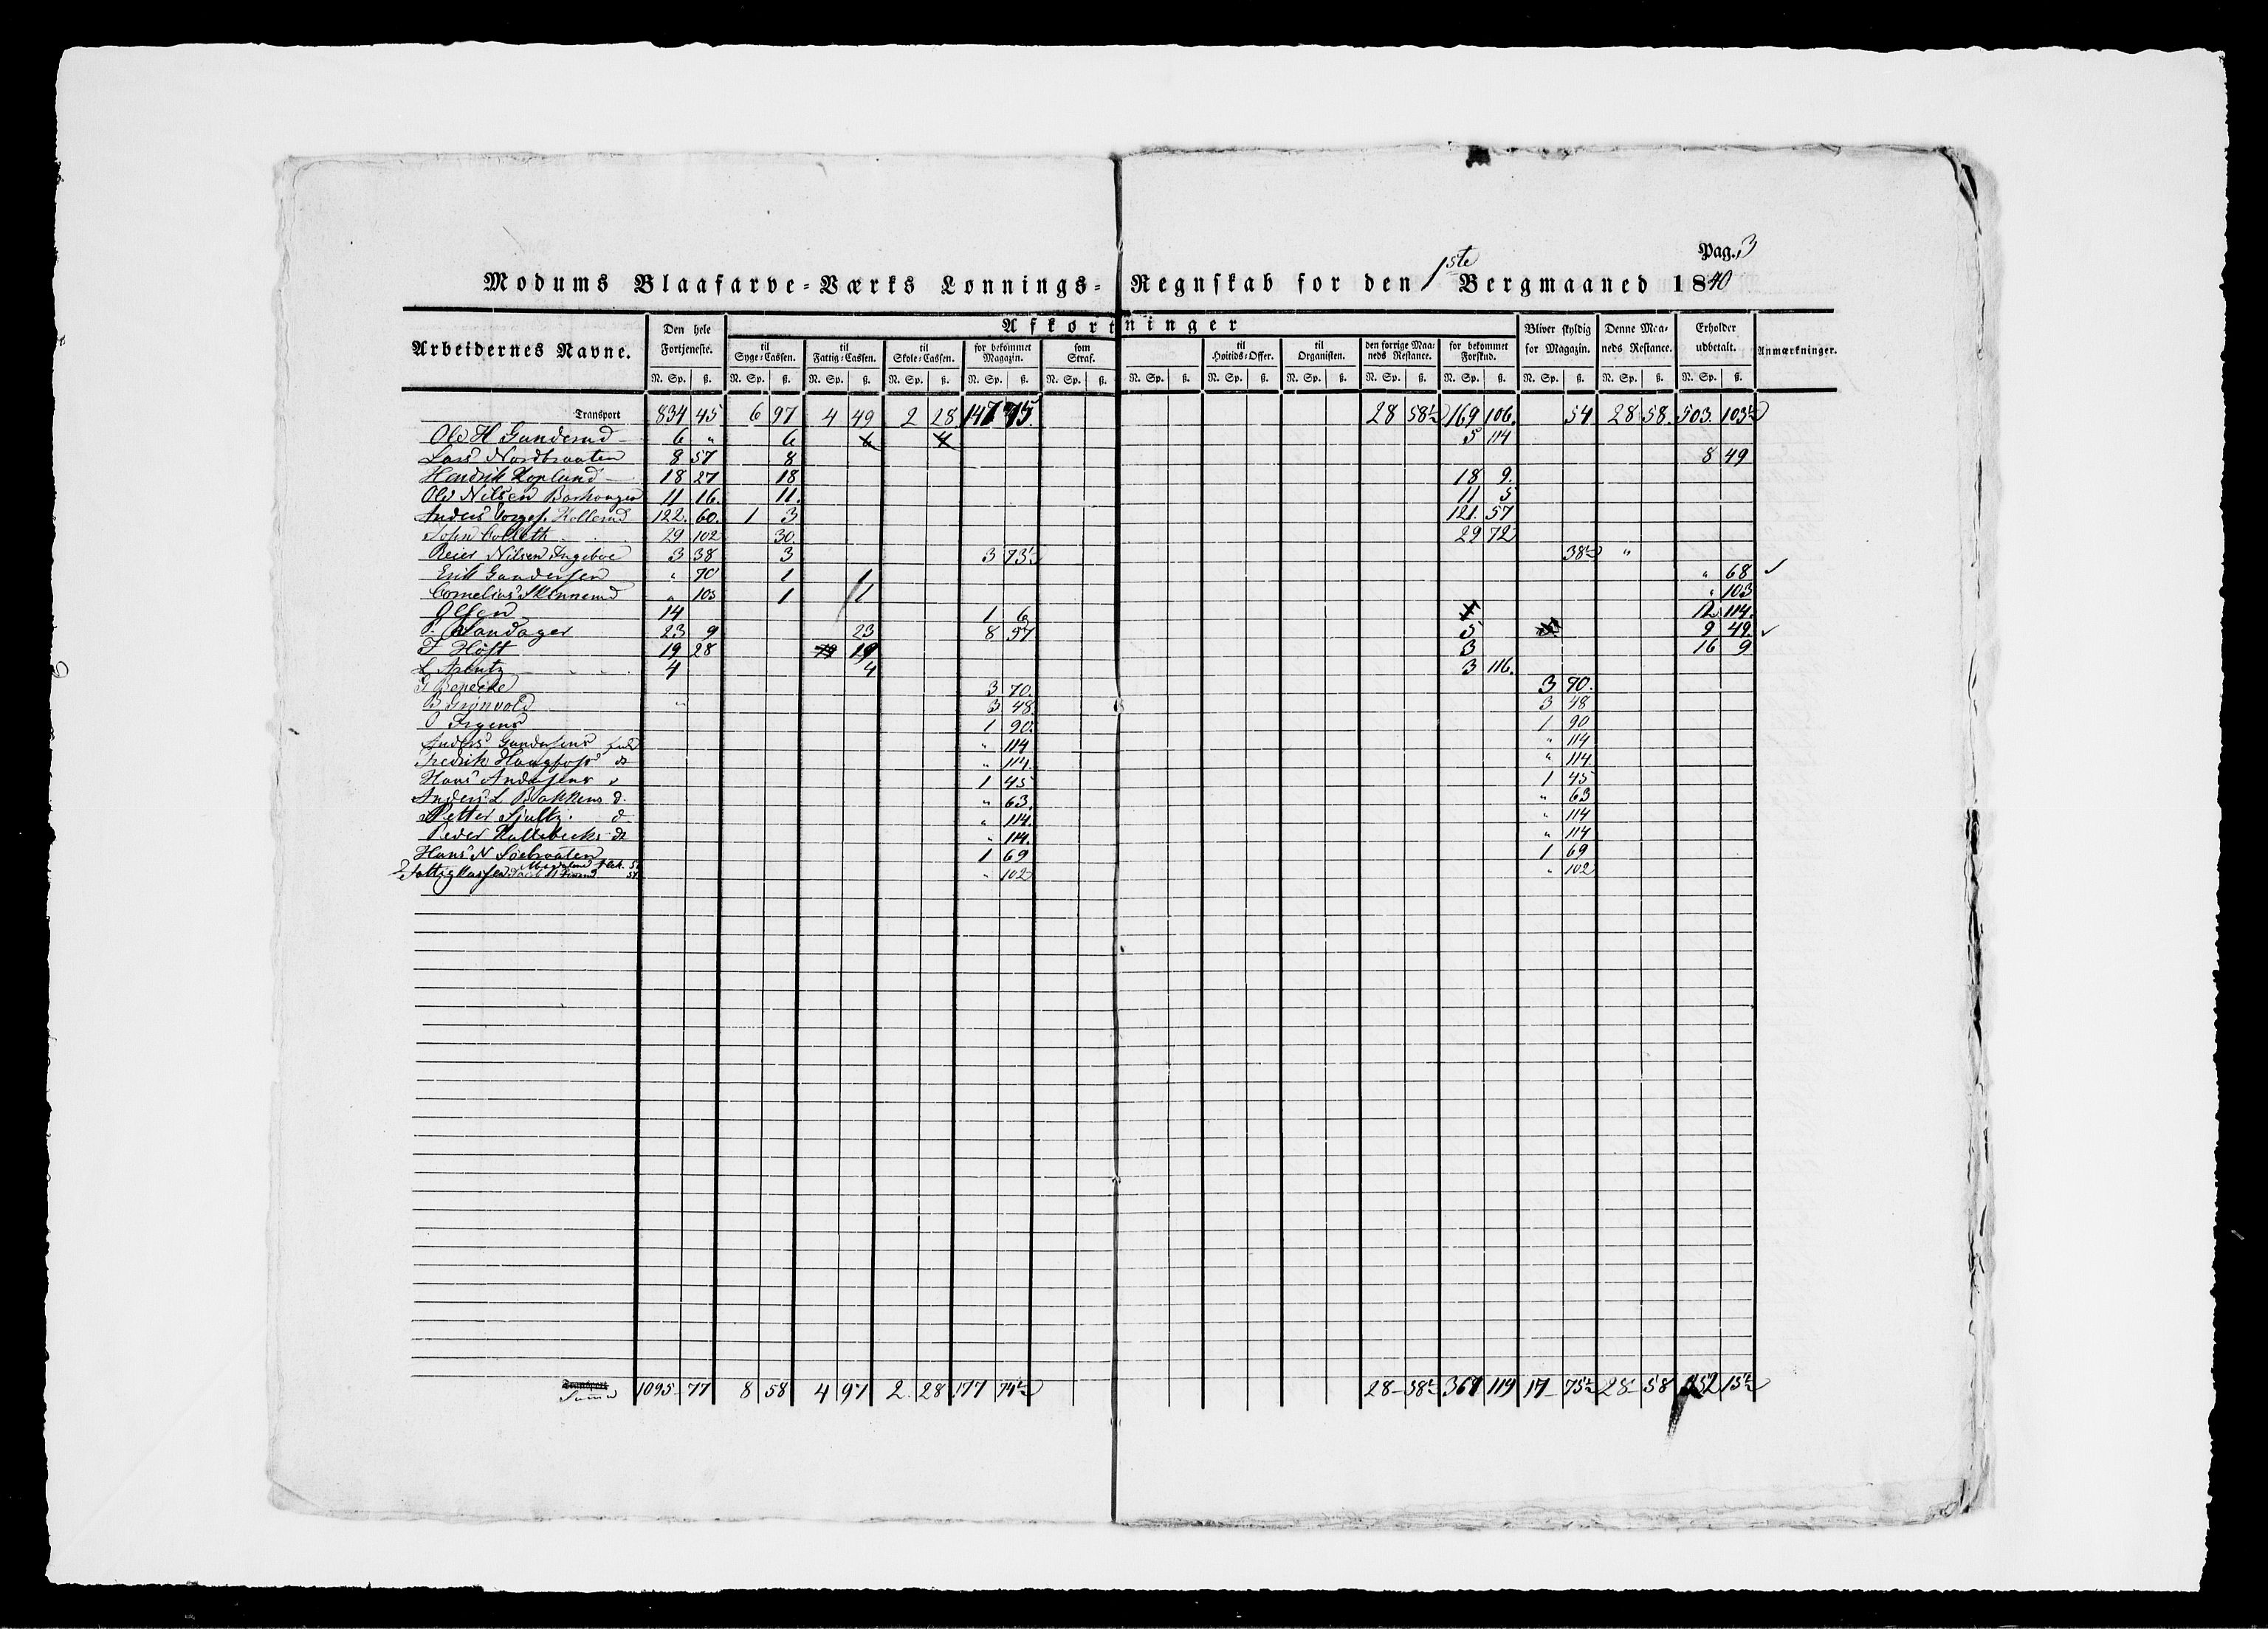 Pag. 3
Modums Blaafarve-Værks Lønnings-Regnskab for den 1ste Bergmaaned 1840
Arbeidernes Navne. Den hele Fortjeneste. Afkortninger Bliver skyldig for Magazin. Denne Maaneds Restance. Erholder udbetalt. Anmærkninger.
til Syge-Cassen. til Fattig-Cassen. til Skole-Cassen. for bekommet Magazin. som Straf. til Høitids-Offer. til Organisten. den forrige Maaneds Restance. for bekommet Forskud.
N. Sp. ß. N. Sp. ß. N. Sp. ß. N. Sp. ß. N. Sp. ß. N. Sp. ß. N. Sp. ß. N. Sp. ß. N. Sp. ß. N. Sp. ß. N. Sp. ß. N. Sp. ß. N. Sp. ß. N. Sp. ß.
Transport 834 45 6 97 4 49 2 28 147 75. 28 58½ 169 106. 54 28 58. 503. 103½
Ole H Gunderud 6 " 6 6 4 5 114
Lars Nordbraaten 8 57 8 8 49
Hendrik Kopland 18 27 18 18 9.
Ole Nilsen 11 16. 11. 11 5
Anders Torgs. Kollerud 122. 60. 1 3 121. 57
John Colleth 29 102 30. 29 72
Peder Nilsen Ingeboe 3 38 3 3 73½ 38½ "
Erik Gundersen " 70 1 1 " 68 ✓
Cornelius Skinnerud " 105 1 1 " 103
Olsen 14 1 6 1 12 114.
P. Sandager 23 9 23 8 57 5 9 49. ✓
F Høst 19 28 19 3 16 9
L Arentz 4 4 3 116.
G Benecke 3 70. 3 70.
B Grønvold " 3 48. 3 48
O Irgens 1 90. 1 90
Anders Gundersens " 114 " 114
Fredrik Haugfoss d " 114. " 114
Hans Andersens d 1 45 1 45
Anders L Bakkens d. " 63. " 63
Petter Sjultz. d " 114. " 114
Peder Kallebecks d " 114. " 114
Hans N 1 69 1 69
Fattigkassen " 102 " 102
Transport
Summa 1095 77 8 58 4 97 2 28 177 74½ 28 58½ 369 119 17 75½ 28 58 552 15½